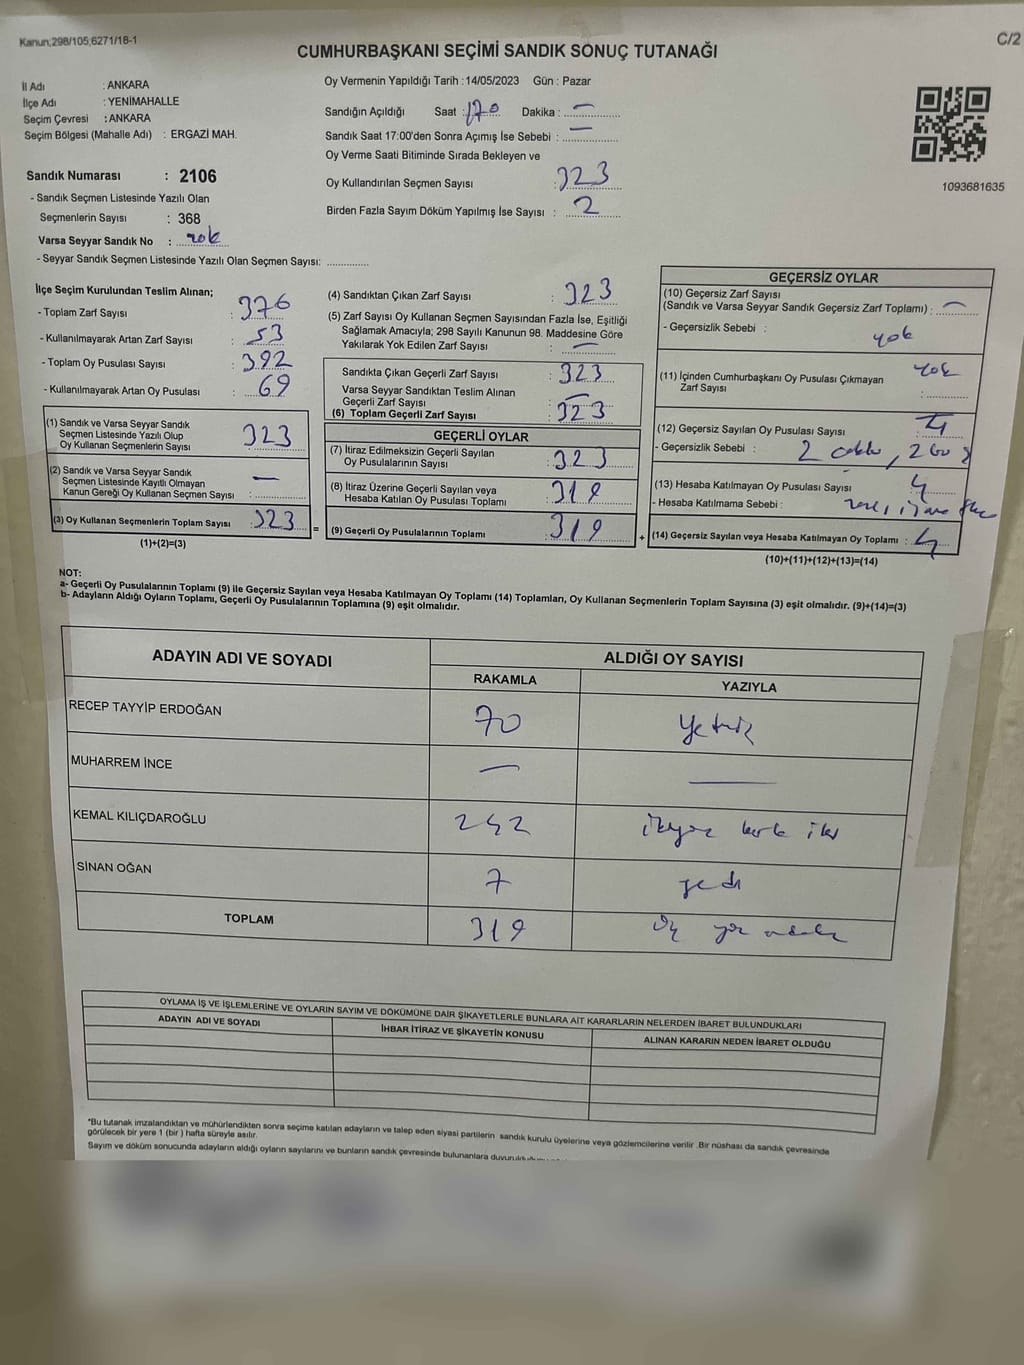 Kanun;298/105;6271/18-1
C/2
CUMHURBAŞKANI SEÇİMİ SANDIK SONUÇ TUTANAĞI
İl Adı : ANKARA
İlçe Adı : YENİMAHALLE
Seçim Çevresi : ANKARA
Seçim Bölgesi (Mahalle Adı) : ERGAZİ MAH.
Oy Vermenin Yapıldığı Tarih : 14/05/2023 Gün : Pazar
Sandığın Açıldığı Saat : Dakika : —
Sandık Saat 17:00'den Sonra Açımış İse Sebebi : —
Oy Verme Saati Bitiminde Sırada Bekleyen ve
Oy Kullandırılan Seçmen Sayısı : 323
Birden Fazla Sayım Döküm Yapılmış İse Sayısı : 2
1093681635
Sandık Numarası : 2106
- Sandık Seçmen Listesinde Yazılı Olan
Seçmenlerin Sayısı : 368
Varsa Seyyar Sandık No : yok
- Seyyar Sandık Seçmen Listesinde Yazılı Olan Seçmen Sayısı:
İlçe Seçim Kurulundan Teslim Alınan;
- Toplam Zarf Sayısı : 376
- Kullanılmayarak Artan Zarf Sayısı : 53
- Toplam Oy Pusulası Sayısı : 392
- Kullanılmayarak Artan Oy Pusulası : 69
(1) Sandık ve Varsa Seyyar Sandık
Seçmen Listesinde Yazılı Olup
Oy Kullanan Seçmenlerin Sayısı 323
(2) Sandık ve Varsa Seyyar Sandık
Seçmen Listesinde Kayıtlı Olmayan
Kanun Gereği Oy Kullanan Seçmen Sayısı : —
(3) Oy Kullanan Seçmenlerin Toplam Sayısı : 323
(1)+(2)=(3)
(4) Sandıktan Çıkan Zarf Sayısı : 323
(5) Zarf Sayısı Oy Kullanan Seçmen Sayısından Fazla İse, Eşitliği
Sağlamak Amacıyla; 298 Sayılı Kanunun 98. Maddesine Göre
Yakılarak Yok Edilen Zarf Sayısı : —
Sandıkta Çıkan Geçerli Zarf Sayısı : 323
Varsa Seyyar Sandıktan Teslim Alınan
Geçerli Zarf Sayısı : —
(6) Toplam Geçerli Zarf Sayısı : 323
GEÇERLİ OYLAR
(7) İtiraz Edilmeksizin Geçerli Sayılan
Oy Pusulalarının Sayısı : 323
(8) İtiraz Üzerine Geçerli Sayılan veya
Hesaba Katılan Oy Pusulaları Toplamı : 319
=
(9) Geçerli Oy Pusulalarının Toplamı : 319
+
GEÇERSİZ OYLAR
(10) Geçersiz Zarf Sayısı
(Sandık ve Varsa Seyyar Sandık Geçersiz Zarf Toplamı) : —
- Geçersizlik Sebebi : yok
(11) İçinden Cumhurbaşkanı Oy Pusulası Çıkmayan
Zarf Sayısı : yok
(12) Geçersiz Sayılan Oy Pusulası Sayısı : 4
- Geçersizlik Sebebi :
(13) Hesaba Katılmayan Oy Pusulası Sayısı : 4
- Hesaba Katılmama Sebebi :
(14) Geçersiz Sayılan veya Hesaba Katılmayan Oy Toplamı : 4
(10)+(11)+(12)+(13)=(14)
NOT:
a- Geçerli Oy Pusulalarının Toplamı (9) ile Geçersiz Sayılan veya Hesaba Katılmayan Oy Toplamı (14) Toplamları, Oy Kullanan Seçmenlerin Toplam Sayısına (3) eşit olmalıdır. (9)+(14)=(3)
b- Adayların Aldığı Oyların Toplamı, Geçerli Oy Pusulalarının Toplamına (9) eşit olmalıdır.
ADAYIN ADI VE SOYADI
ALDIĞI OY SAYISI
RAKAMLA YAZIYLA
RECEP TAYYİP ERDOĞAN 70 Yetmiş
MUHARREM İNCE — —
KEMAL KILIÇDAROĞLU 242 ikiyüz kırk iki
SİNAN OĞAN 7 yedi
TOPLAM 319 Üç yüz
OYLAMA İŞ VE İŞLEMLERİNE VE OYLARIN SAYIM VE DÖKÜMÜNE DAİR ŞİKAYETLERLE BUNLARA AİT KARARLARIN NELERDEN İBARET BULUNDUKLARI
ADAYIN ADI VE SOYADI İHBAR İTİRAZ VE ŞİKAYETİN KONUSU ALINAN KARARIN NEDEN İBARET OLDUĞU
*Bu tutanak imzalandıktan ve mühürlendikten sonra seçime katılan adayların ve talep eden siyasi partilerin sandık kurulu üyelerine veya gözlemcilerine verilir .Bir nüshası da sandık çevresinde
görülecek bir yere 1 (bir ) hafta süreyle asılır.
Sayım ve döküm sonucunda adayların aldığı oyların sayılarını ve bunların sandık çevresinde bulunanlara